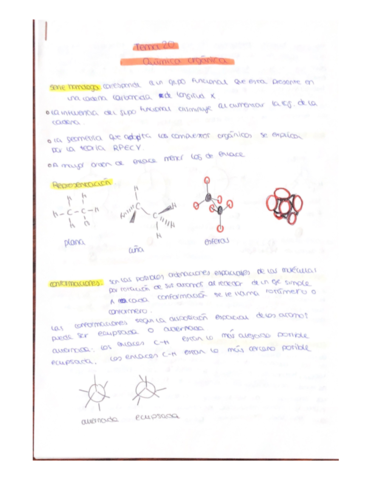 Tema 20
Química orgánica
Serie homóloga: corresponde a un grupo funcional que está presente en
una cadena carbonada de longitud x
la influencia del grupo funcional disminuye al aumentar la long. de la
cadena
la geometría que adopta los compuestos orgánicos se explica
por la teoría RPECV
A mayor orden de enlace menor long de enlace
Representación
H H
H-C-C-H
H H
H C C H
plana
cuña
esferas
conformaciones: son las posibles ordenaciones espaciales de las moléculas
por rotación de sus átomos al rededor de un eje simple
A cada conformación se le llama rotámero o
confórmero
Las conformaciones según la disposición espacial de los átomos
puede ser eclipsada o alternada
alternada: los enlaces C-H están lo más alejados posible
eclipsada: los enlaces C-H están lo más cercano posible
alternada eclipsada